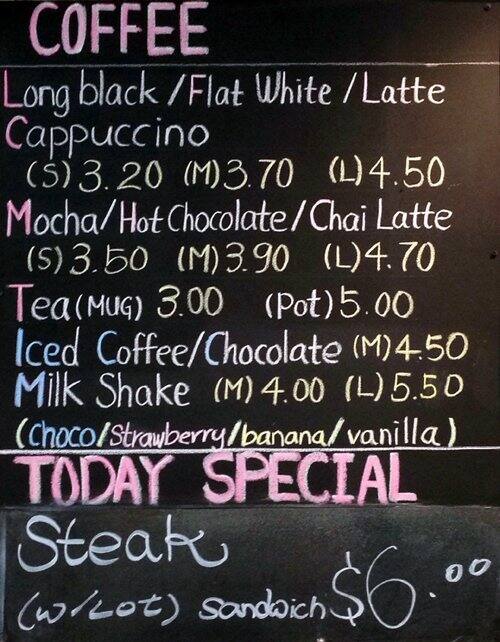 COFFEE
Long black / Flat White / Latte
Cappuccino
(S) 3.20 (M) 3.70 (L) 4.50
Mocha/Hot Chocolate/Chai Latte
(S) 3.50 (M) 3.90 (L) 4.70
Tea (MUG) 3.00 (Pot) 5.00
Iced Coffee/Chocolate (M) 4.50
Milk Shake (M) 4.00 (L) 5.50
(Choco/Strawberry/banana/vanilla)
TODAY SPECIAL
Steak
(w/Lot) sandwich $6.00